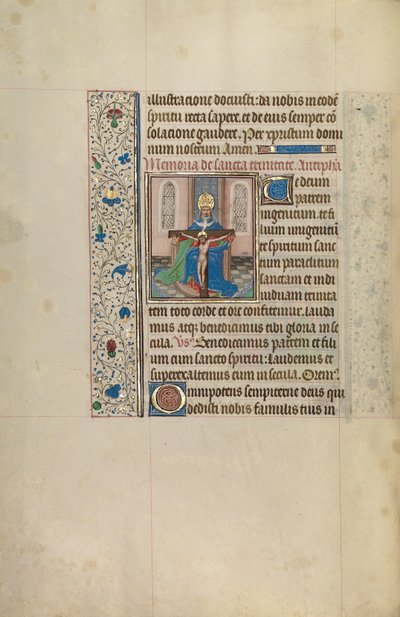 illustracione docuisti: da nobis in eodē
spiritu recta sapere. et de eius semper cō
solacione gaudere. Per xpristum domi
num nostrum Amen.
Memoria de sancta trinitate. Antepha
Te deum
patrem
ingenitum. te fi
lium unigenitū
te spiritum sanc
tum paraclitum
sanctam et indi
uiduam trinita
tem toto corde et ore confitemur. lauda
mus atq; benedicimus tibi gloria in se
cula. Vs. Benedicamus patrem et fili
um cum sancto spiritu: Laudemus et
superexaltemus eum in secula. Orem'.
Omnipotens sempiterne deus qui
dedisti nobis famulis tuis in